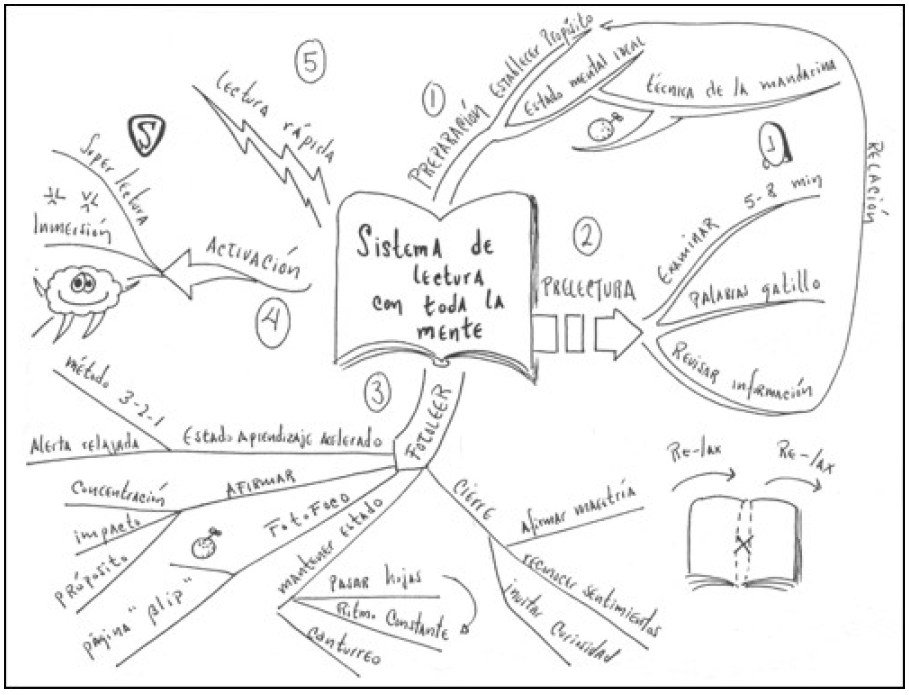 Sistema de
lectura
con toda la
mente
1
PREPARACIÓN
Establecer Propósito
Estado mental ideal
técnica de la mandarina
RELACIÓN
2
PRELECTURA
Examinar 5-8 min
Palabras gatillo
Revisar información
3
FOTOLEER
Estado Aprendizaje Acelerado
método 3-2-1
Alerta relajada
AFIRMAR
Concentración
impacto
Própósito
FotoFoco
página "blip"
mantener estado
Pasar hojas
Ritmo Constante
Canturreo
Cierre
Afirmar maestría
reconocer sentimientos
invitar Curiosidad
Re-lax
Re-lax
4
ACTIVACIÓN
Super lectura
Inmersión
S
5
lectura rápida